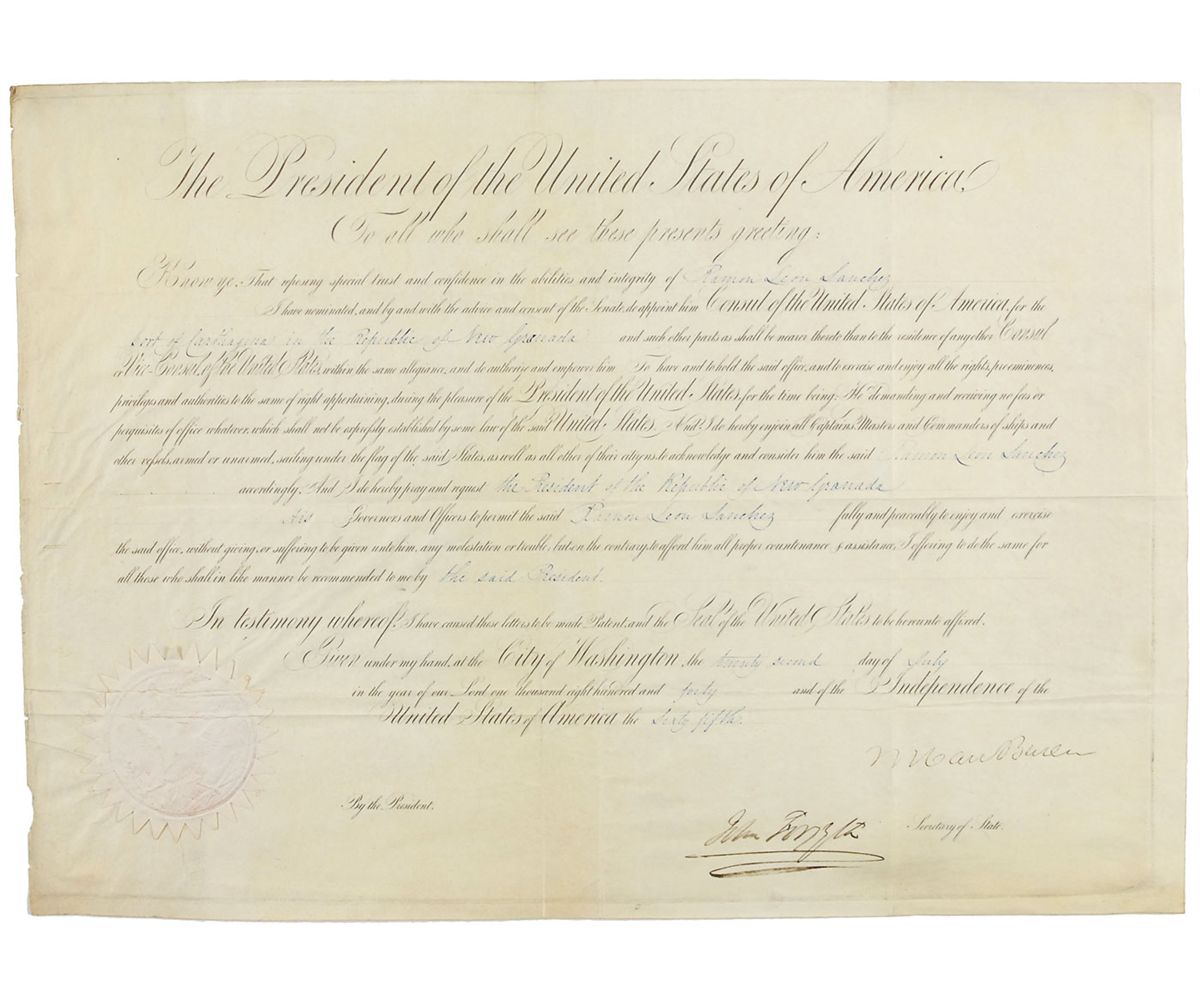 The President of the United States of America,
To all who shall see these presents greeting:
Know ye, That reposing special trust and confidence in the abilities and integrity of Ramon Leon Sanchez
I have nominated, and by and with the advice and consent of the Senate, do appoint him Consul of the United States of America, for the
Port of Carthagena in the Republic of New Granada and such other parts as shall be nearer thereto than to the residence of any other Consul
or Vice-Consul of the United States, within the same allegiance, and do authorize and empower him To have and to hold the said office, and to exercise and enjoy all the rights, preeminences,
privileges and authorities to the same of right appertaining, during the pleasure of the President of the United States, for the time being; He demanding and receiving no fees or
perquisites of office whatever, which shall not be expressly established by some law of the said United States. And I do hereby enjoin all Captains, Masters and Commanders of ships and
other vessels, armed or unarmed, sailing under the flag of the said States, as well as all other of their citizens, to acknowledge and consider him the said Ramon Leon Sanchez
accordingly. And I do hereby pray and request the President of the Republic of New Granada
His Governors and Officers to permit the said Ramon Leon Sanchez fully and peaceably to enjoy and exercise
the said office, without giving, or suffering to be given unto him, any molestation or trouble, but on the contrary, to afford him all proper countenance & assistance, I offering to do the same for
all those who shall in like manner be recommended to me by the said President.
In testimony whereof, I have caused these letters to be made Patent, and the Seal of the United States to be hereunto affixed.
Given under my hand, at the City of Washington, the twenty second day of July
in the year of our Lord one thousand eight hundred and forty and of the Independence of the
United States of America, the Sixty fifth.
M Van Buren
By the President.
John Forsyth Secretary of State.